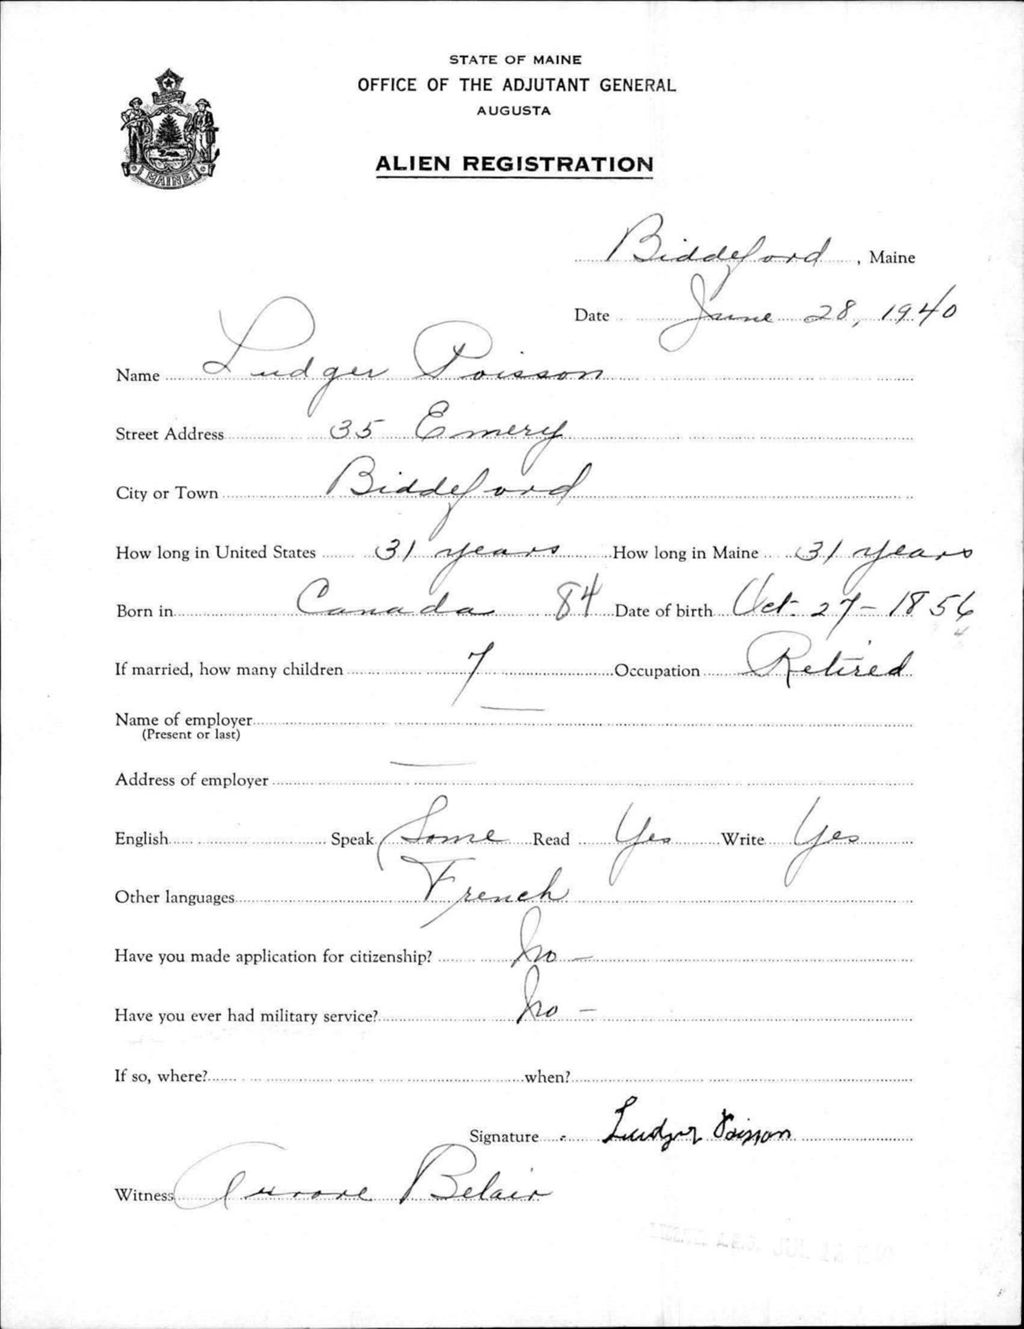 STATE OF MAINE
OFFICE OF THE ADJUTANT GENERAL
AUGUSTA
ALIEN REGISTRATION
MAINE
Biddeford, Maine
Date June 28, 1940
Name Ludger Poisson
Street Address 35 Emery
City or Town Biddeford
How long in United States 31 years How long in Maine 31 years
Born in Canada 84 Date of birth Oct. 27 - 1856
If married, how many children 7 Occupation Retired
Name of employer —
(Present or last)
Address of employer —
English Speak Some Read Yes Write Yes
Other languages French
Have you made application for citizenship? No —
Have you ever had military service? No —
If so, where? when?
Signature Ludger Poisson
Witness Aurore Belair